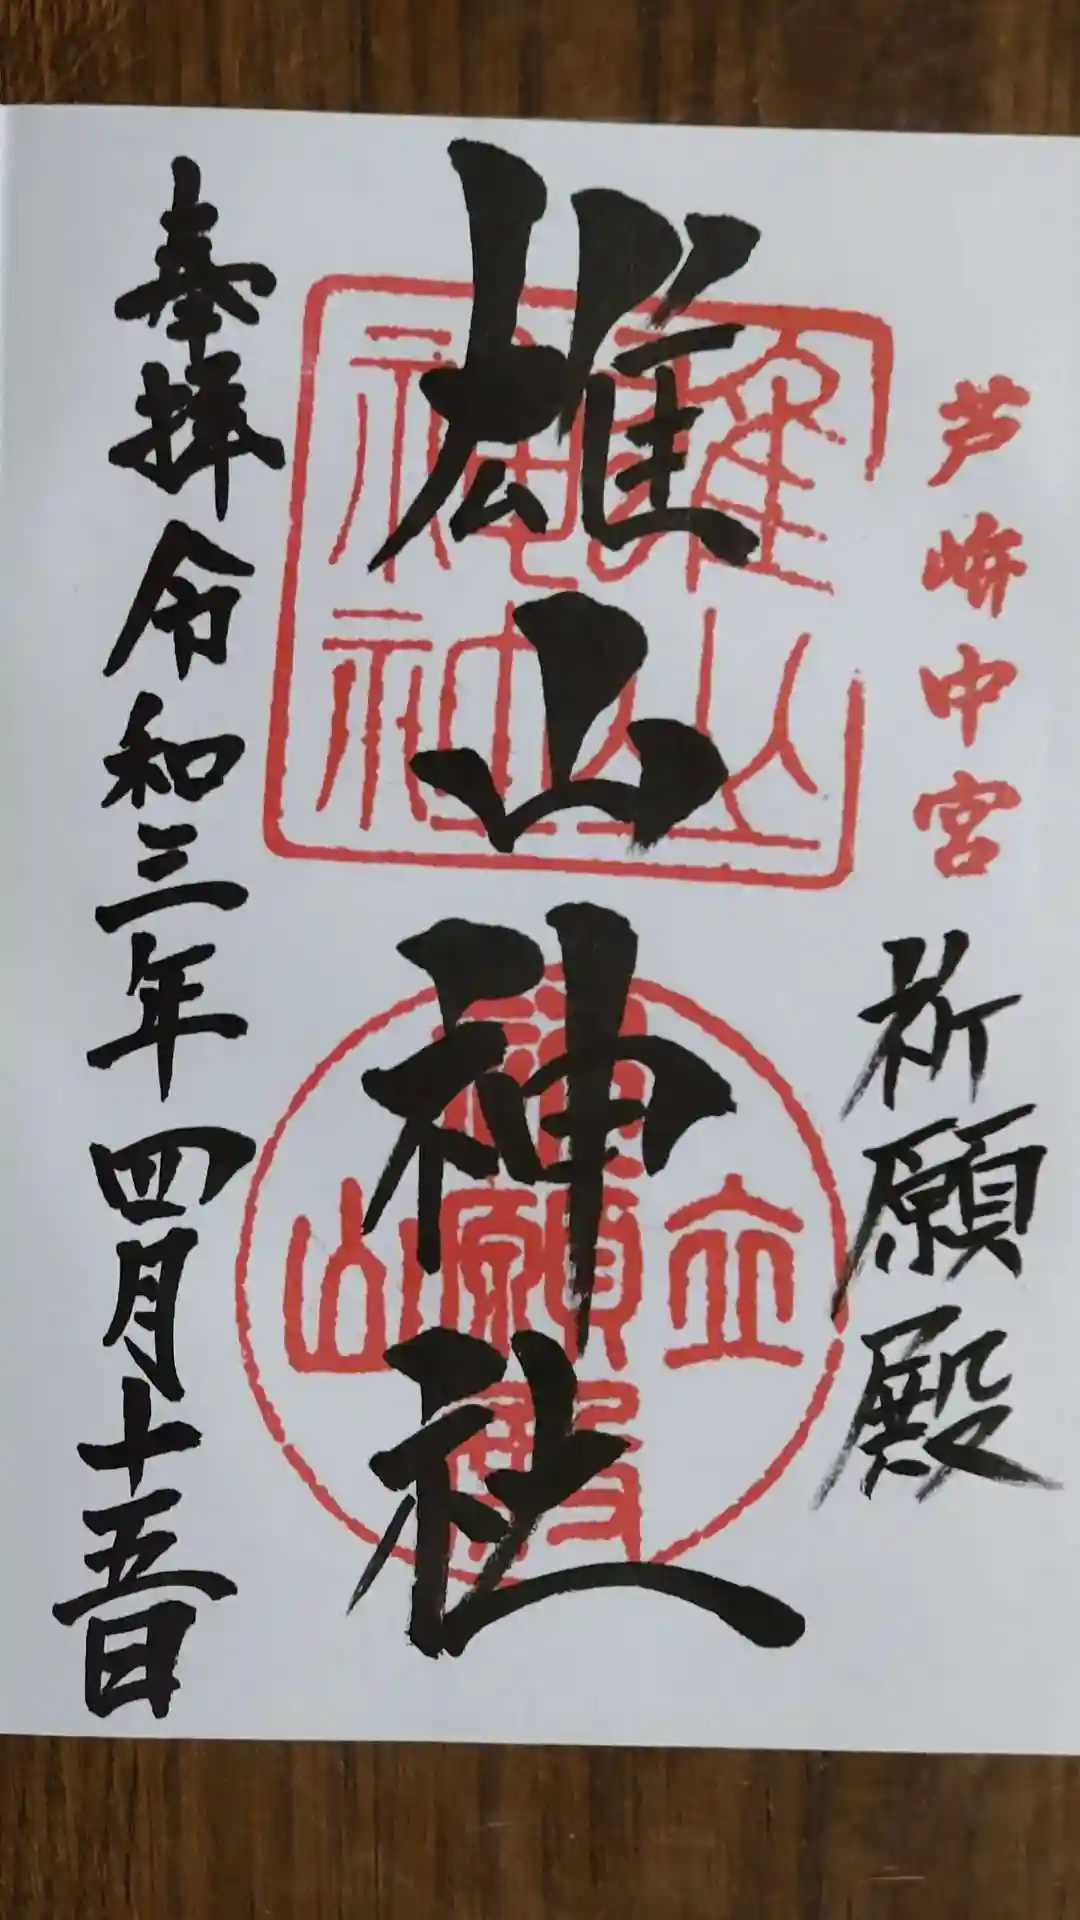 芦峅中宮
祈願殿
雄山神社
雄山
神社
立
祈願殿
山
奉拝 令和三年四月十五日